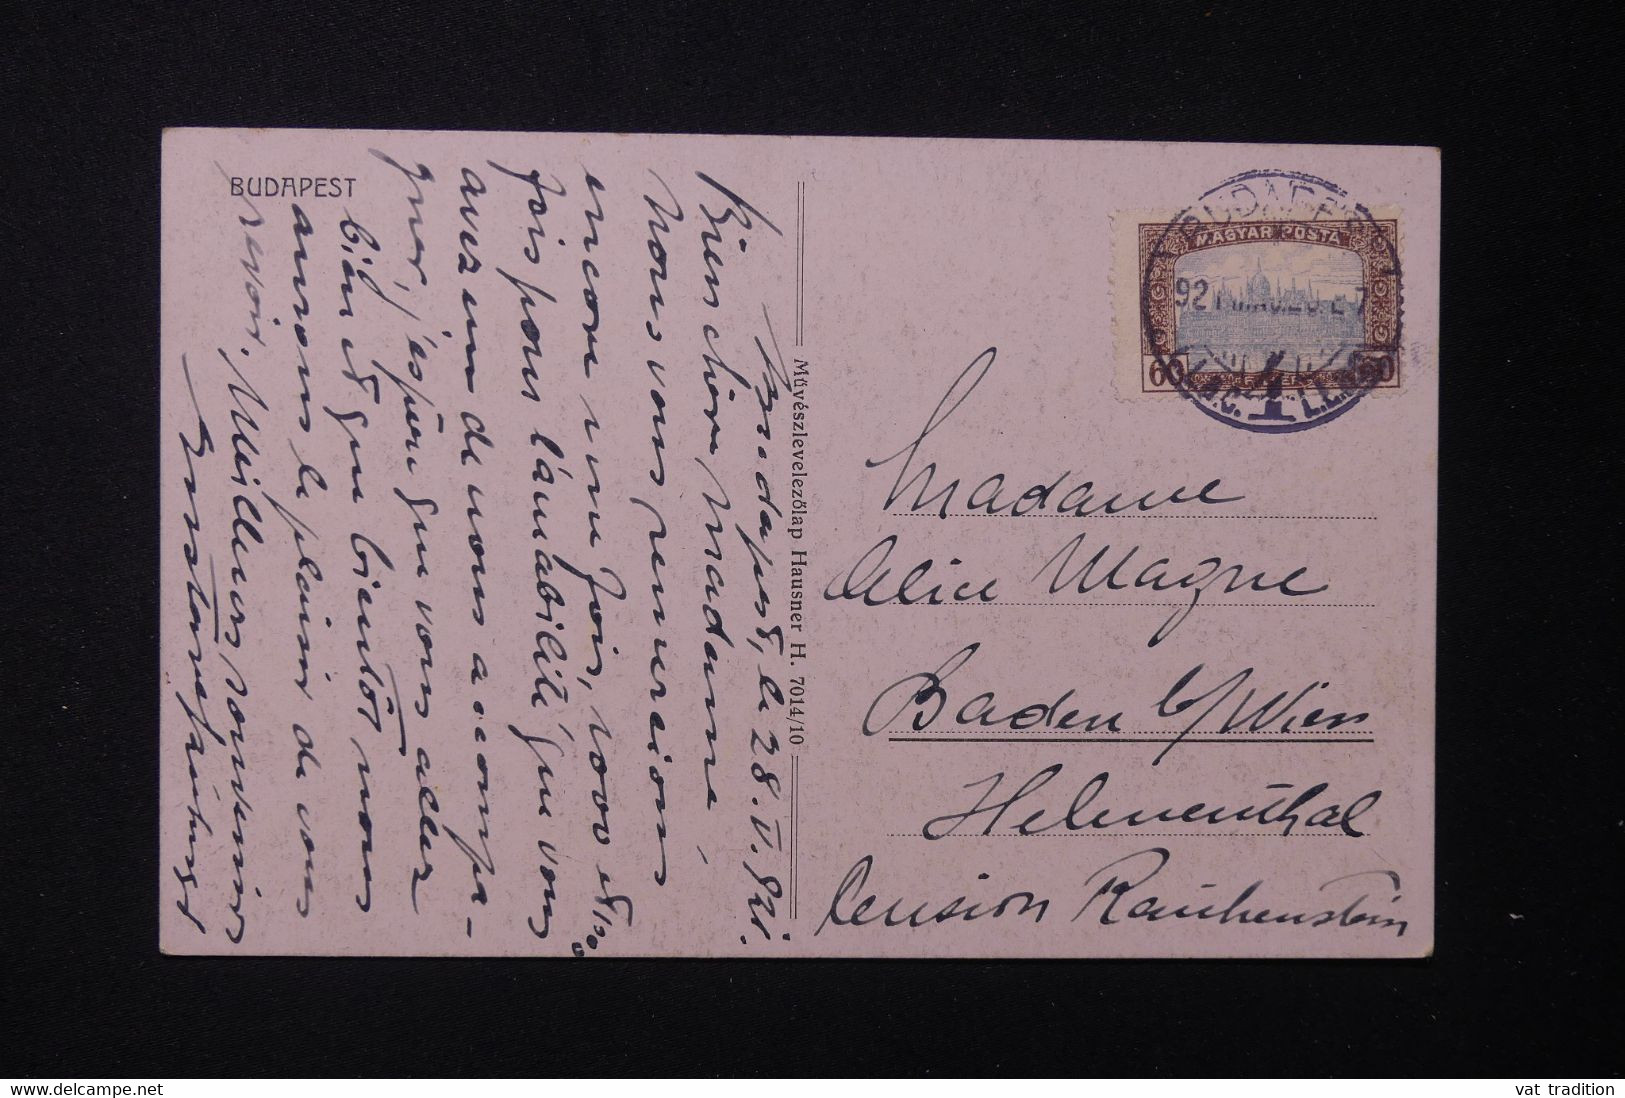 BUDAPEST
Budapest, le 28. V. 921.
Bien chère Madame,
Nous vous remercions
encore une fois, 1000 et 1000
fois pour l'amabilité que vous
avez eu de nous accompa-
gner, j'espère que vous aller
bien et que bientôt nous
aurons le plaisir de vous
revoir. Meilleurs souvenirs
Művészlevelezőlap Hausner H. 7014/10
BUDAPEST
MAGYAR POSTA
60 60
Madame
Alice Magne
Baden b/Wien
Helenenthal
Pension Rauhenstein
delcampe.net
vat tradition